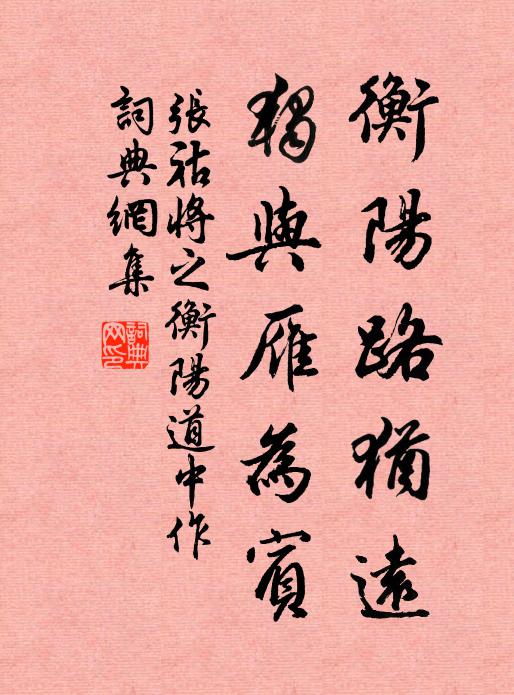 衡陽路猶遠
獨與雁為賓
張祜將之衡陽道中作
詞典網集
詞典网印